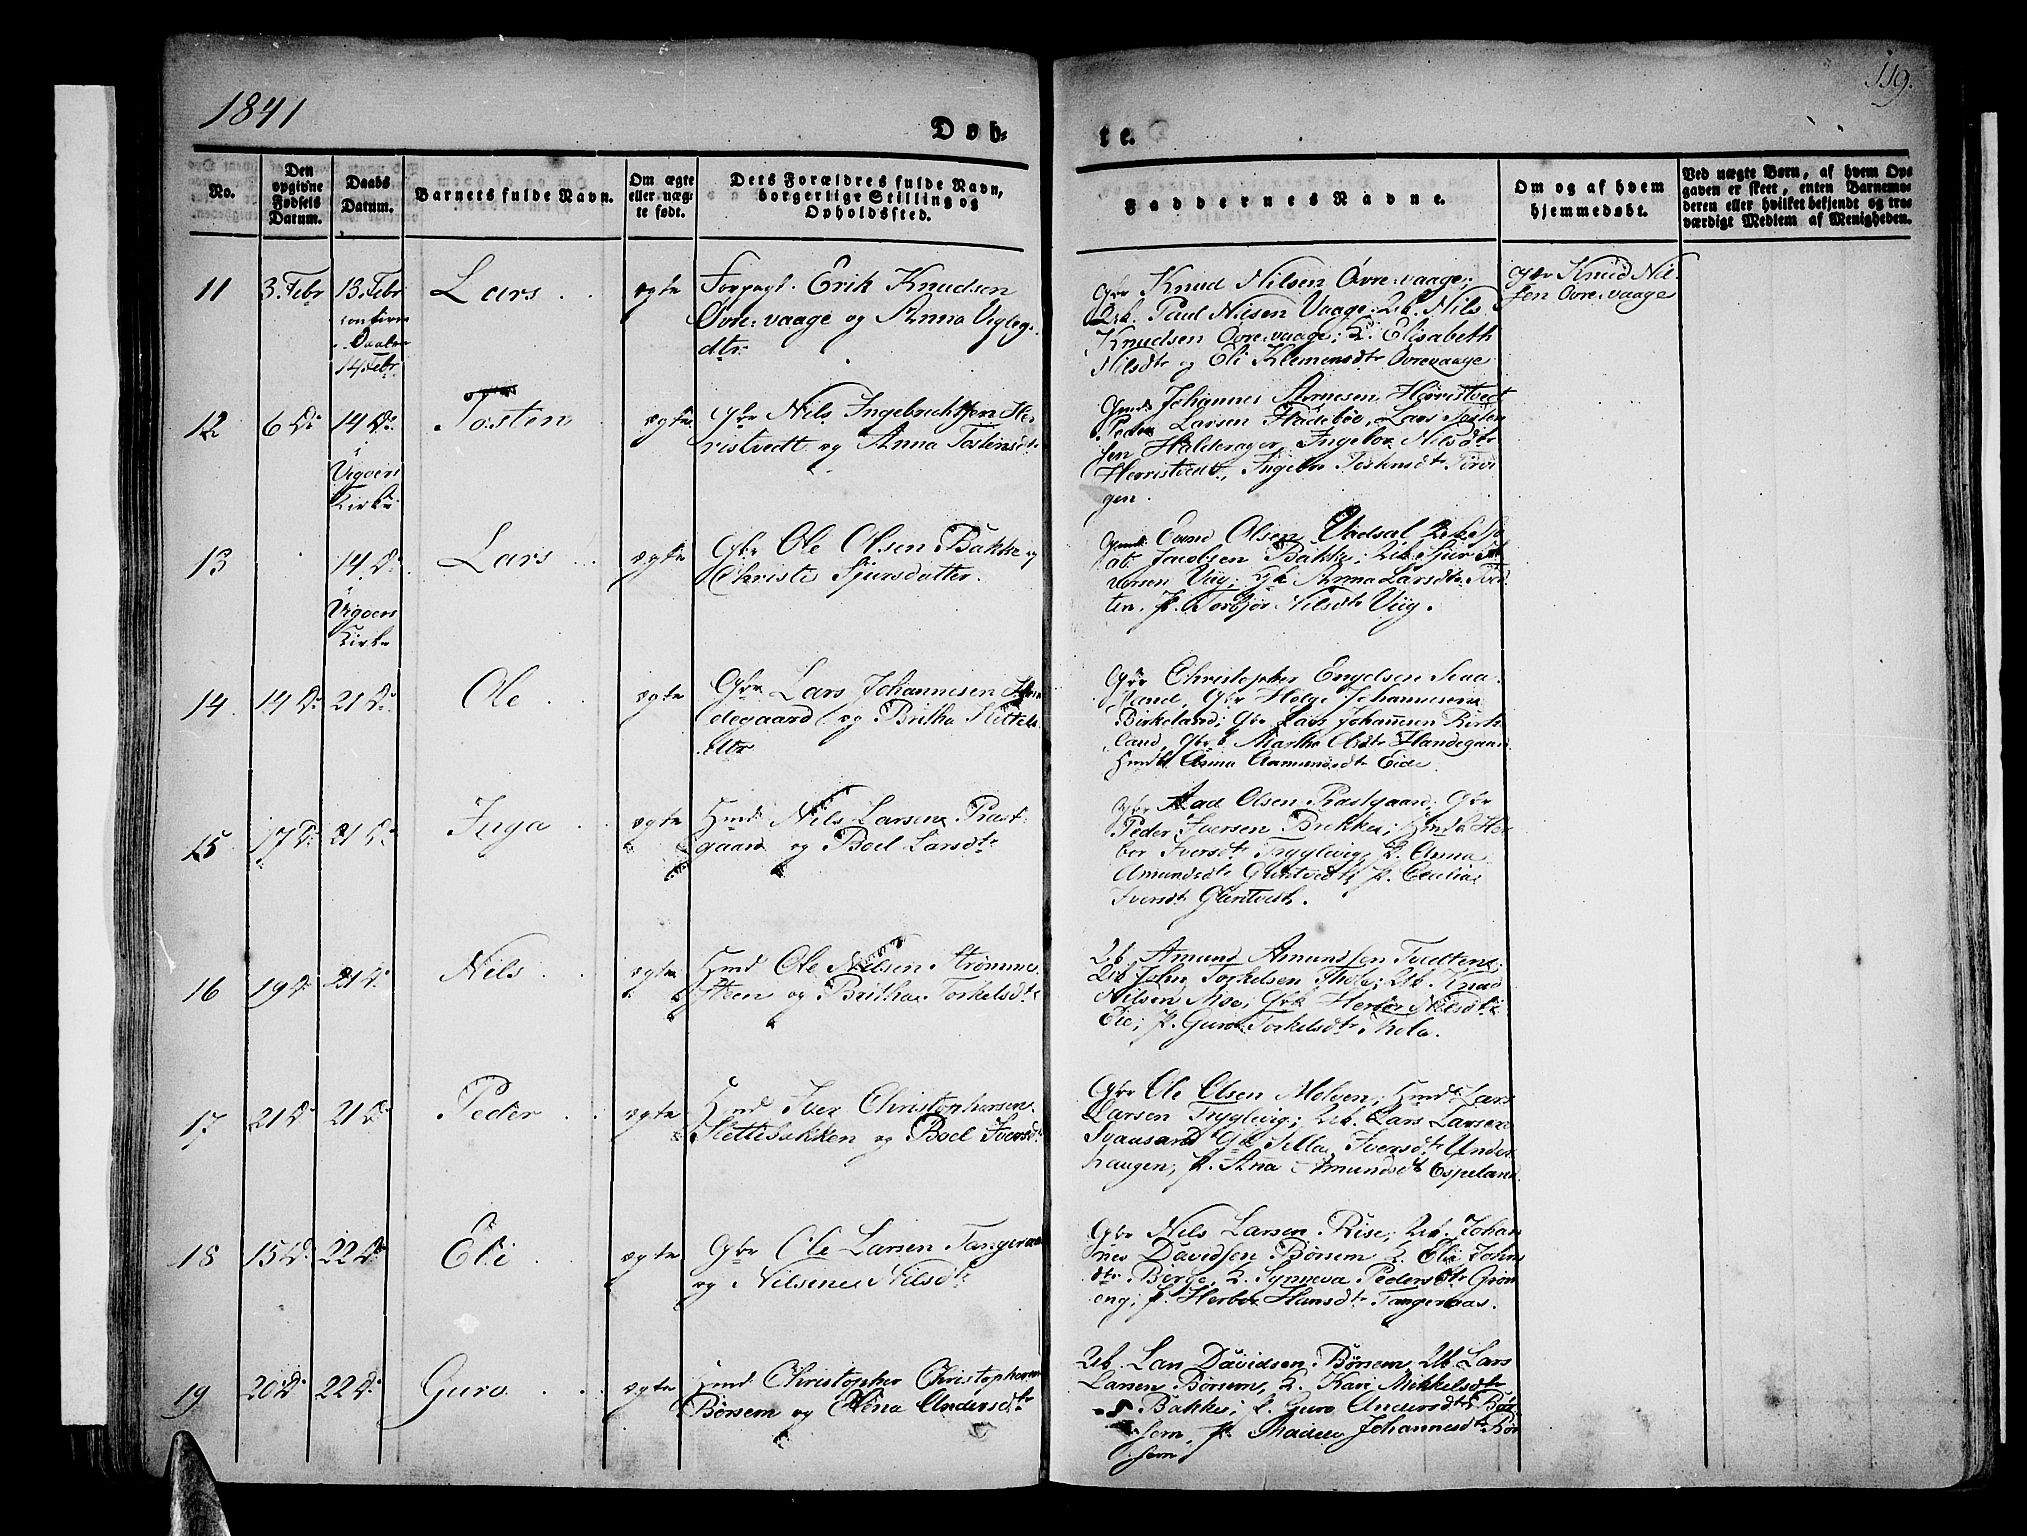 1841
119.
Døb-
te.
No.
Den
opgivne
Fødsels
Datum.
Daabs
Datum.
Barnets fulde Navn.
Om ægte
eller uæg-
te født.
Dets Forældres fulde Navn,
borgerlige Stilling og
Opholdssted.
Faddernes Navne.
Om og af hvem
hjemmedøbt.
Ved uægte Børn, af hvem Op-
gaven er skeet, enten Barnemo-
deren eller hvilket bekjendt og tro-
værdigt Medlem af Menigheden.
11
3 Febr
13 Febr
14 Febr
Lars
ægte
Erik Knudsen
Øvre-vaage og Anna Vigleg-
dtr
Gbr Knud Nilsen Øvre-vaage;
Paul Nilsen Vaage; Uk. Nils
Knudsen Øvrevaage; K. Elisabeth
Nilsdtr og Eli Klemensdtr Øvrevaage
Gbr Knud Nil-
sen Øvre-vaage
12
6 Do
14 Do
i
Vigøers
Kirke
Tosten
ægte
Gbr Nils Ingebrichtsen He-
ristvedt og Anna Tostensdtr
Johannes Arnesen Heristvedt
Peder Larsen Flådebøe, Lars Tosten-
sen Halderager, Ingebor Nilsdtr
Herristvedt, Ingebr Tostensdtr
gen.
13
14 Do
i
Vigøers
Kirke
Lars
ægte
Gbr Ole Olsen Bakke og
Christi Sjursdatter.
Olsen Vadsal
Jacobsen Bakke; Uk Sjur
Viig; Gk Anna Larsdtr
P. Torbjør Nilsdtr Viig.
14
14 Do
21 Do
Ole
ægte
Gbr Lars Johannesen Han-
degaard og Britha Kittels-
dtr
Gbr Christopher Engelsen Aaa-
land, Gbr Helge Johannesen
Birkeland; Gbr Lars Johannesen Birke-
land, Gbrk Martha Olsdtr Handegaard
Hmdk Anna Aamundsdtr Eide.
15
17 Do
21 Do
Inga
ægte
Hmd Nils Larsen Præst-
gaard og Boel Larsdtr
Gbr Aad Olsen Præstgaard; Gbr
Peder Iversen Brekke; Hmdk Her-
bor Iversdtr Tryglevig, K. Anna
Amundsdtr Glintvedt, P. Cecilia
Iversdtr Glintvedt.
16
19 Do
21 Do
Nils
ægte
Hmd Ole Nilsen Strømme-
steen og Britha Torkelsdtr
Uk. Amund Amundsen Tvedten;
Uk John Torkelsen Thola; Uk. Knud
Nilsen Moe; Gbk Herbor Nilsdtr
Eie; P. Guro Torkelsdtr Thola.
17
21 Do
21 Do
Peder
ægte
Hmd Iver Christophersen
Slettebakken og Boel Iversdtr
Gbr Ole Olsen Molven; Hmd Lars
Larsen Tryglevig; Uk. Lars Larsen
Svaasand Gk Sella Iversdtr Under-
haugen; P. Ana Amundsdtr Espeland
18
15 Do
22 Do
Eli
ægte
Gbr Ole Larsen Tangeraas
og Nilsene Nilsdtr
Gbr Nils Larsen Rise; Uk. Johan-
nes Davidsen Børsem K. Eli Johns-
dtr Berge, K. Synneva Pedersdtr Grøn-
eng; P. Herbor Hansdtr Tangeraas.
19
20 Do
22 Do
Guro
ægte
Hmd Christopher Christophersen
Børsem og Elena Andersdtr
Uk. Lars Davidsen Børsem, Uk Lars
Larsen Børsem, K. Kari Mikkelsdtr
Bakke; P. Guro Andersdtr Bør-
sem, P. Johannesdtr Bør-
sem